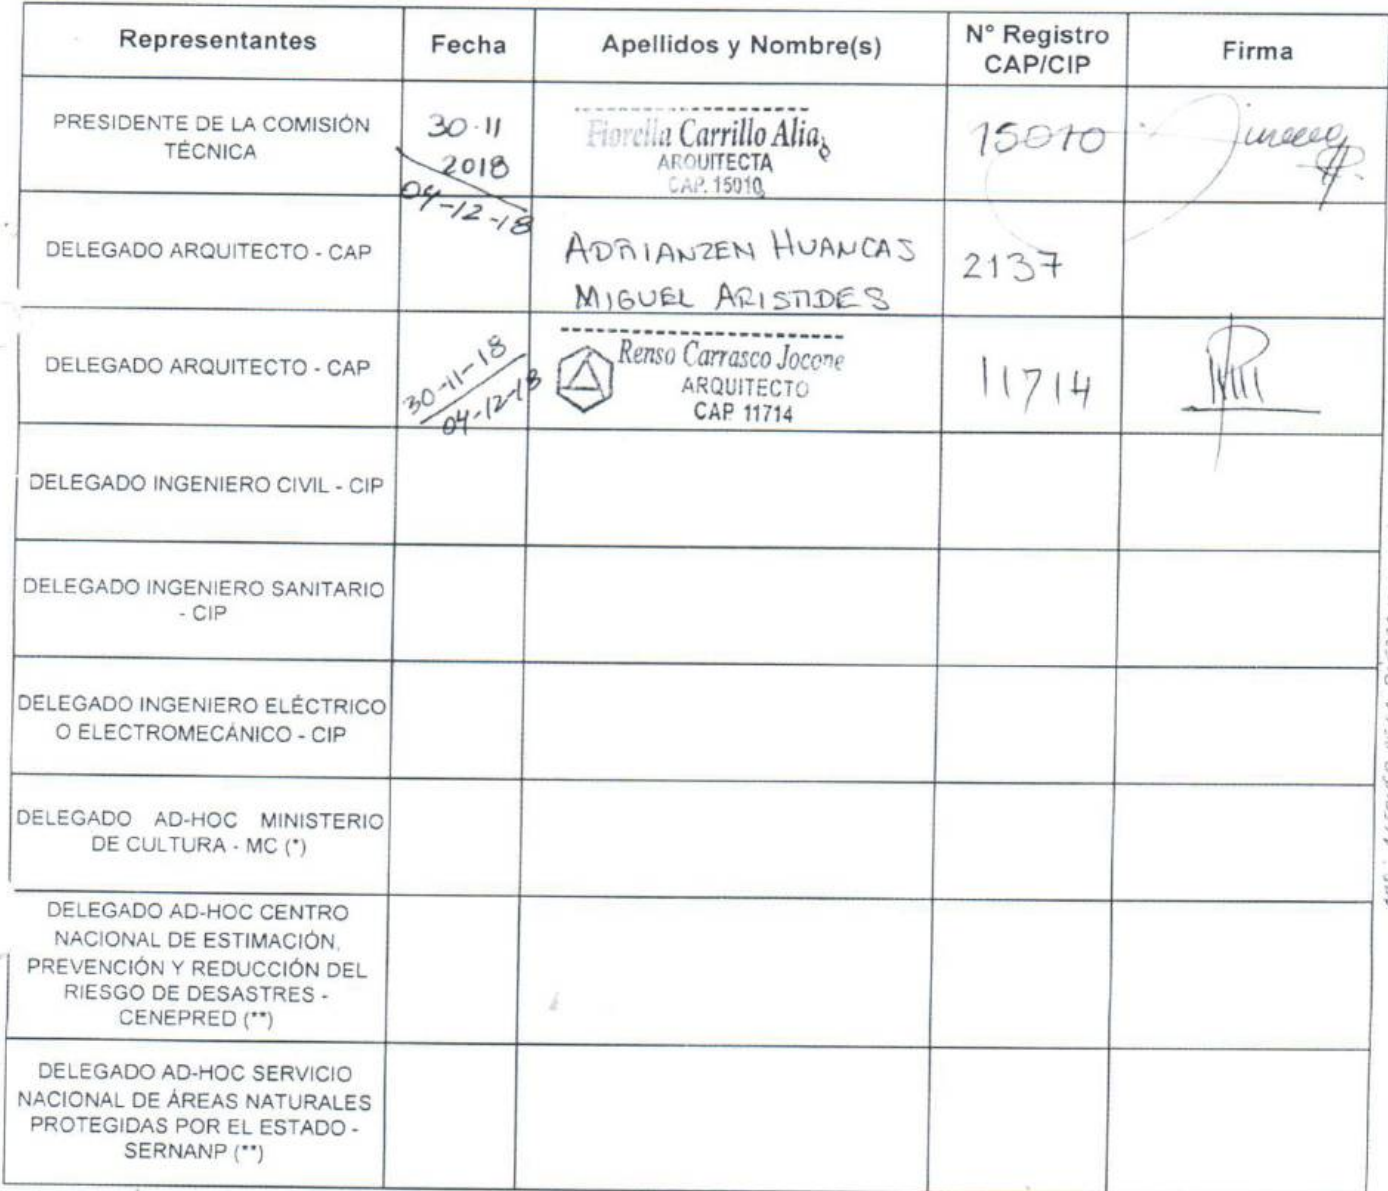 Representantes Fecha Apellidos y Nombre(s) N° Registro CAP/CIP Firma
PRESIDENTE DE LA COMISIÓN
TÉCNICA
30·11
2018
04-12-18
Fiorella Carrillo Alia
ARQUITECTA
CAP. 15010
15010
DELEGADO ARQUITECTO - CAP
ADRIANZEN HUANCAS
MIGUEL ARISTIDES
2137
DELEGADO ARQUITECTO - CAP
30-11-18
04-12-18
Renso Carrasco Jocone
ARQUITECTO
CAP 11714
11714
DELEGADO INGENIERO CIVIL - CIP
DELEGADO INGENIERO SANITARIO
- CIP
DELEGADO INGENIERO ELÉCTRICO
O ELECTROMECÁNICO - CIP
DELEGADO AD-HOC MINISTERIO
DE CULTURA - MC (*)
DELEGADO AD-HOC CENTRO
NACIONAL DE ESTIMACIÓN,
PREVENCIÓN Y REDUCCIÓN DEL
RIESGO DE DESASTRES -
CENEPRED (**)
DELEGADO AD-HOC SERVICIO
NACIONAL DE ÁREAS NATURALES
PROTEGIDAS POR EL ESTADO -
SERNANP (**)